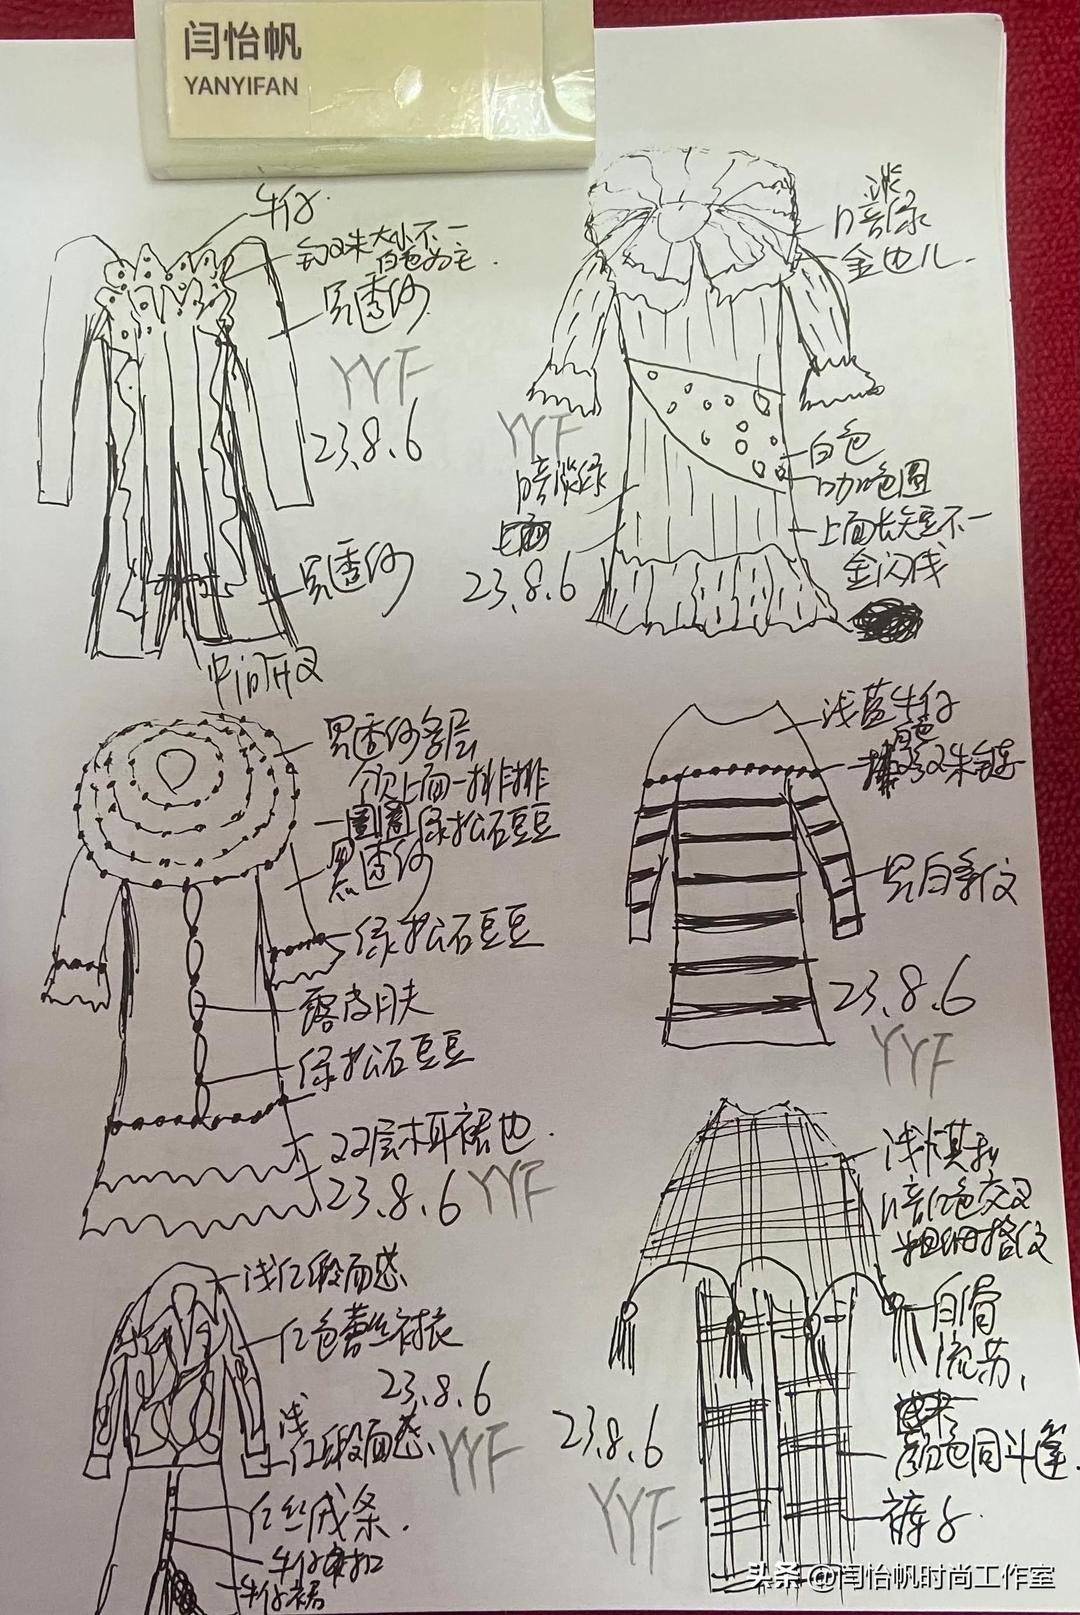 闫怡帆
YANYIFAN
牛仔
钉双珠大小不一
白色为主.
黑透纱
YYF
23.8.6
黑透纱
中间开叉
淡
暗绿
金边儿.
白色
咖色圆
上面长短不一
金闪线
YYF
暗淡绿
23.8.6
黑透纱多层
上面一排排
圈圈绿松石豆豆
黑透纱
绿松石豆豆
露皮肤
绿松石豆豆
双层木耳裙边.
23.8.6 YYF
浅蓝牛仔
白色
珠链
黑白条纹
23.8.6
YYF
浅红缎面感
红色蕾丝衬衣
23.8.6
浅
红缎面感.
YYF
红丝绒条.
牛仔扣
牛仔裙
浅棋
暗红色交叉
粗细格纹
白滑
流苏、
颜色同斗篷.
裤子.
23.8.6
YYF
头条 @闫怡帆时尚工作室